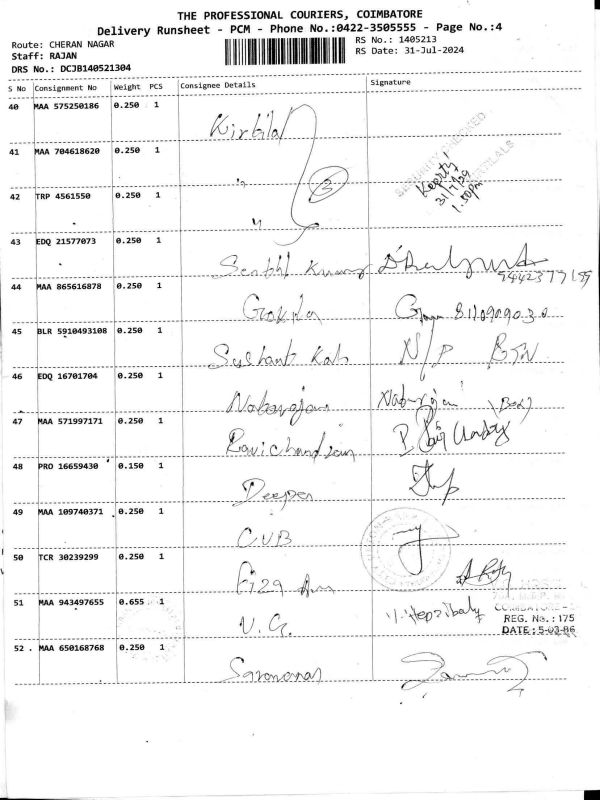 THE PROFESSIONAL COURIERS, COIMBATORE
Delivery Runsheet - PCM - Phone No.:0422-3505555 - Page No.:4
Route: CHERAN NAGAR
RS No.: 1405213
Staff: RAJAN
RS Date: 31-Jul-2024
DRS No.: DCJB140521304
S No Consignment No Weight PCS Consignee Details Signature
40 MAA 575250186 0.250 1
41 MAA 704618620 0.250 1 "
31/7/24
1.50pm
42 TRP 4561550 0.250 1 "
43 EDQ 21577073 0.250 1 Senthil Kumar
44 MAA 865616878 0.250 1 Gokila
45 BLR 5910493108 0.250 1 Sushant N/P BTN
46 EDQ 16701704 0.250 1 Natarajan Natarajan (Box)
47 MAA 571997171 0.250 1 Ravichandran
48 PRO 16659430 0.150 1 Deepa
49 MAA 109740371 0.250 1 CUB
50 TCR 30239299 0.250 1
51 MAA 943497655 0.655 1 V.G.
COIMBATORE
REG. No.: 175
DATE: 5-03-86
52 MAA 650168768 0.250 1 Saravanan